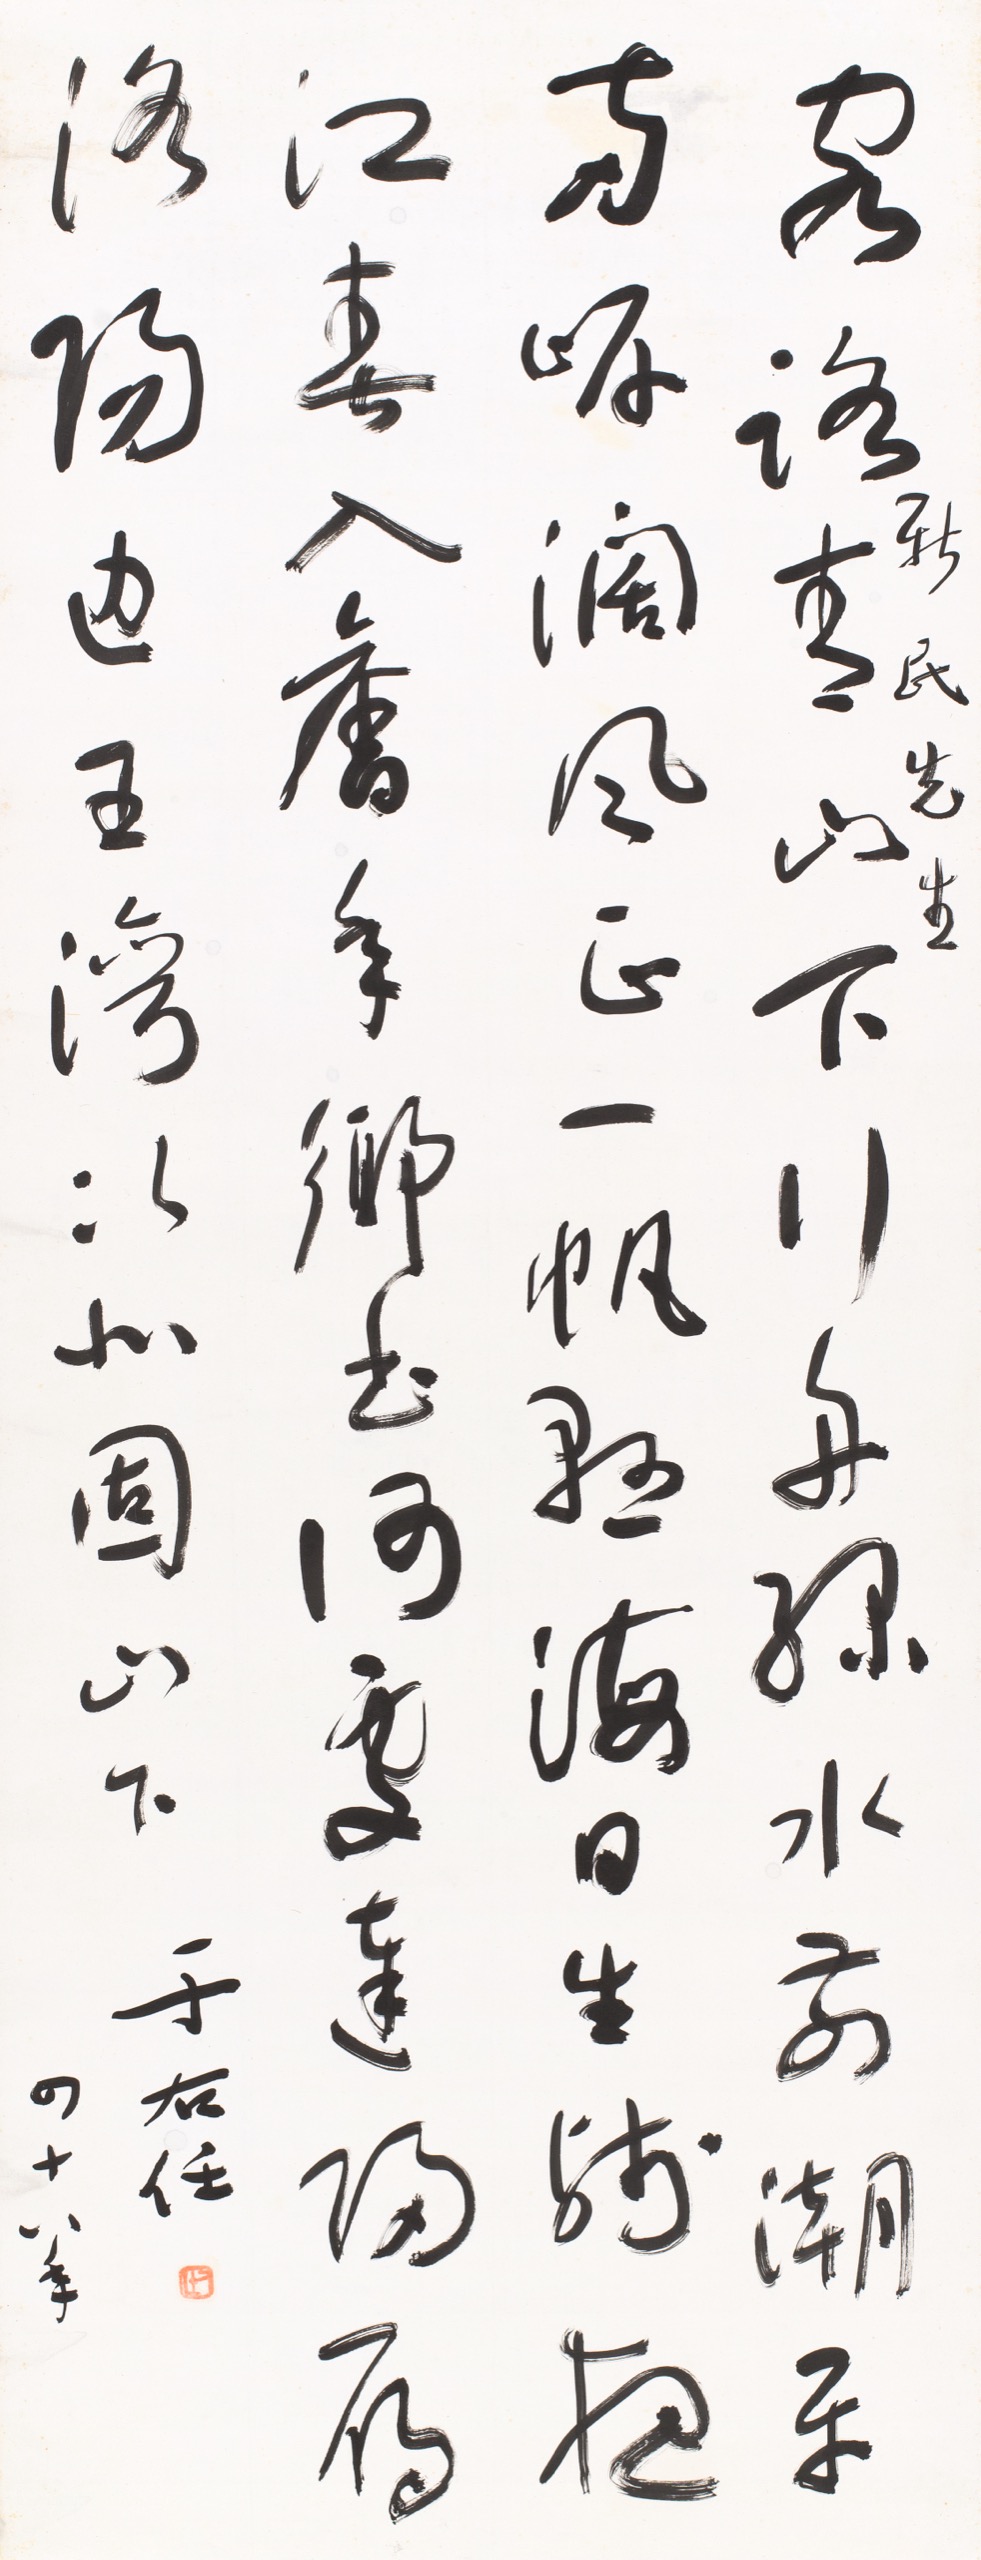 新民先生
客路青山下行舟綠水前潮平
兩岸濶風正一帆懸海日生殘夜
江春入舊年鄉書何處達歸雁
洛陽邊王灣次北固山下
于右任
四十八年